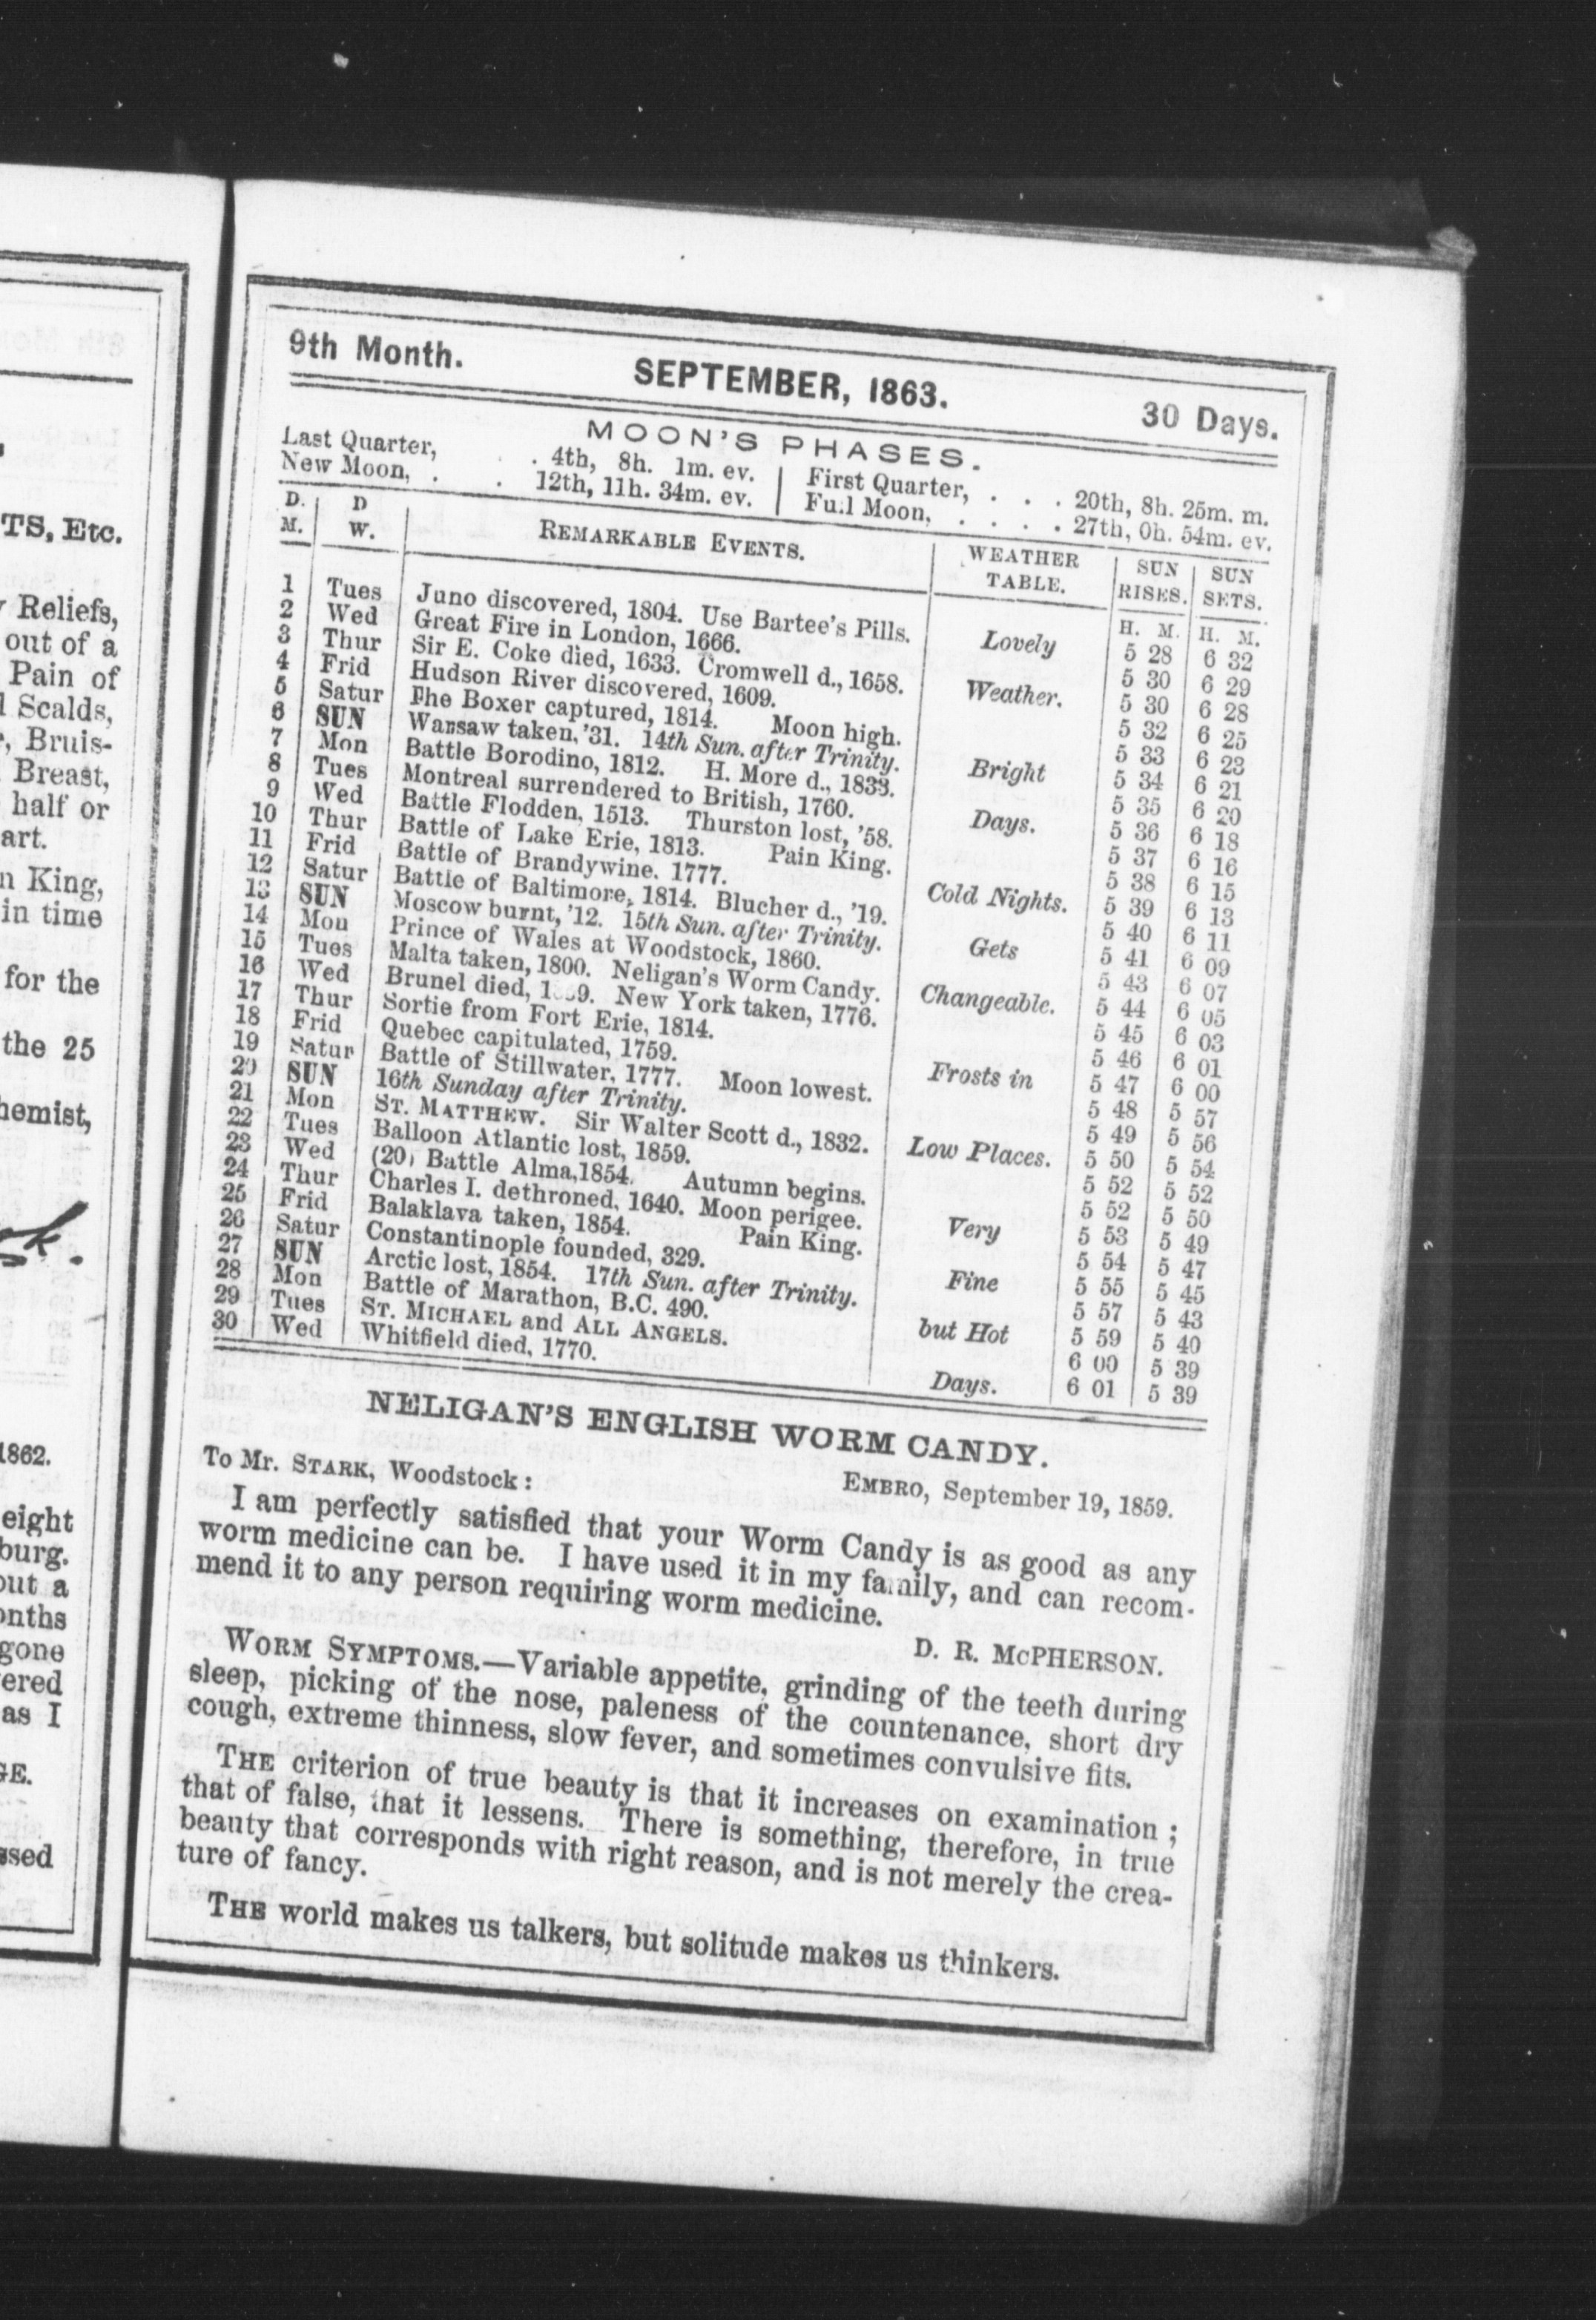 TS, Etc.
Reliefs,
out of a
Pain of
Scalds,
Bruis-
Breast,
half or
art.
King,
in time
for the
the 25
hemist,
1862.
eight
burg.
out a
onths
gone
ered
as I
GE.
ssed
9th Month. SEPTEMBER, 1863. 30 Days.
MOON'S PHASES.
Last Quarter, . . 4th, 8h. 1m. ev. First Quarter, . . . 20th, 8h. 25m. m.
New Moon, . . 12th, 11h. 34m. ev. Full Moon, . . . . 27th, 0h. 54m. ev.
D. M. D W. REMARKABLE EVENTS. WEATHER TABLE. SUN RISES. SUN SETS.
H. M. H. M.
1 Tues Juno discovered, 1804. Use Bartee's Pills. Lovely 5 28 6 32
2 Wed Great Fire in London, 1666. 5 30 6 29
3 Thur Sir E. Coke died, 1633. Cromwell d., 1658. Weather. 5 30 6 28
4 Frid Hudson River discovered, 1609. 5 32 6 25
5 Satur The Boxer captured, 1814. Moon high. 5 33 6 23
6 SUN Warsaw taken, '31. 14th Sun. after Trinity. Bright 5 34 6 21
7 Mon Battle Borodino, 1812. H. More d., 1833. 5 35 6 20
8 Tues Montreal surrendered to British, 1760. Days. 5 36 6 18
9 Wed Battle Flodden, 1513. Thurston lost, '58. 5 37 6 16
10 Thur Battle of Lake Erie, 1813. Pain King. 5 38 6 15
11 Frid Battle of Brandywine. 1777. Cold Nights. 5 39 6 13
12 Satur Battle of Baltimore, 1814. Blucher d., '19. 5 40 6 11
13 SUN Moscow burnt, '12. 15th Sun. after Trinity. Gets 5 41 6 09
14 Mon Prince of Wales at Woodstock, 1860. 5 43 6 07
15 Tues Malta taken, 1800. Neligan's Worm Candy. Changeable. 5 44 6 05
16 Wed Brunel died, New York taken, 1776. 5 45 6 03
17 Thur Sortie from Fort Erie, 1814. 5 46 6 01
18 Frid Quebec capitulated, 1759. Frosts in 5 47 6 00
19 Satur Battle of Stillwater, 1777. Moon lowest. 5 48 5 57
20 SUN 16th Sunday after Trinity. 5 49 5 56
21 Mon ST. MATTHEW. Sir Walter Scott d., 1832. Low Places. 5 50 5 54
22 Tues Balloon Atlantic lost, 1859. 5 52 5 52
23 Wed (20) Battle Alma,1854. Autumn begins. 5 52 5 50
24 Thur Charles I. dethroned, 1640. Moon perigee. Very 5 53 5 49
25 Frid Balaklava taken, 1854. Pain King. 5 54 5 47
26 Satur Constantinople founded, 329. Fine 5 55 5 45
27 SUN Arctic lost, 1854. 17th Sun. after Trinity. 5 57 5 43
28 Mon Battle of Marathon, B.C. 490. but Hot 5 59 5 40
29 Tues ST. MICHAEL and ALL ANGELS. 6 00 5 39
30 Wed Whitfield died, 1770. Days. 6 01 5 39
NELIGAN'S ENGLISH WORM CANDY.
To Mr. STARK, Woodstock: EMBRO, September 19, 1859.
I am perfectly satisfied that your Worm Candy is as good as any
worm medicine can be. I have used it in my family, and can recom-
mend it to any person requiring worm medicine.
D. R. McPHERSON.
WORM SYMPTOMS.—Variable appetite, grinding of the teeth during
sleep, picking of the nose, paleness of the countenance, short dry
cough, extreme thinness, slow fever, and sometimes convulsive fits.
THE criterion of true beauty is that it increases on examination;
that of false, that it lessens. There is something, therefore, in true
beauty that corresponds with right reason, and is not merely the crea-
ture of fancy.
THE world makes us talkers, but solitude makes us thinkers.